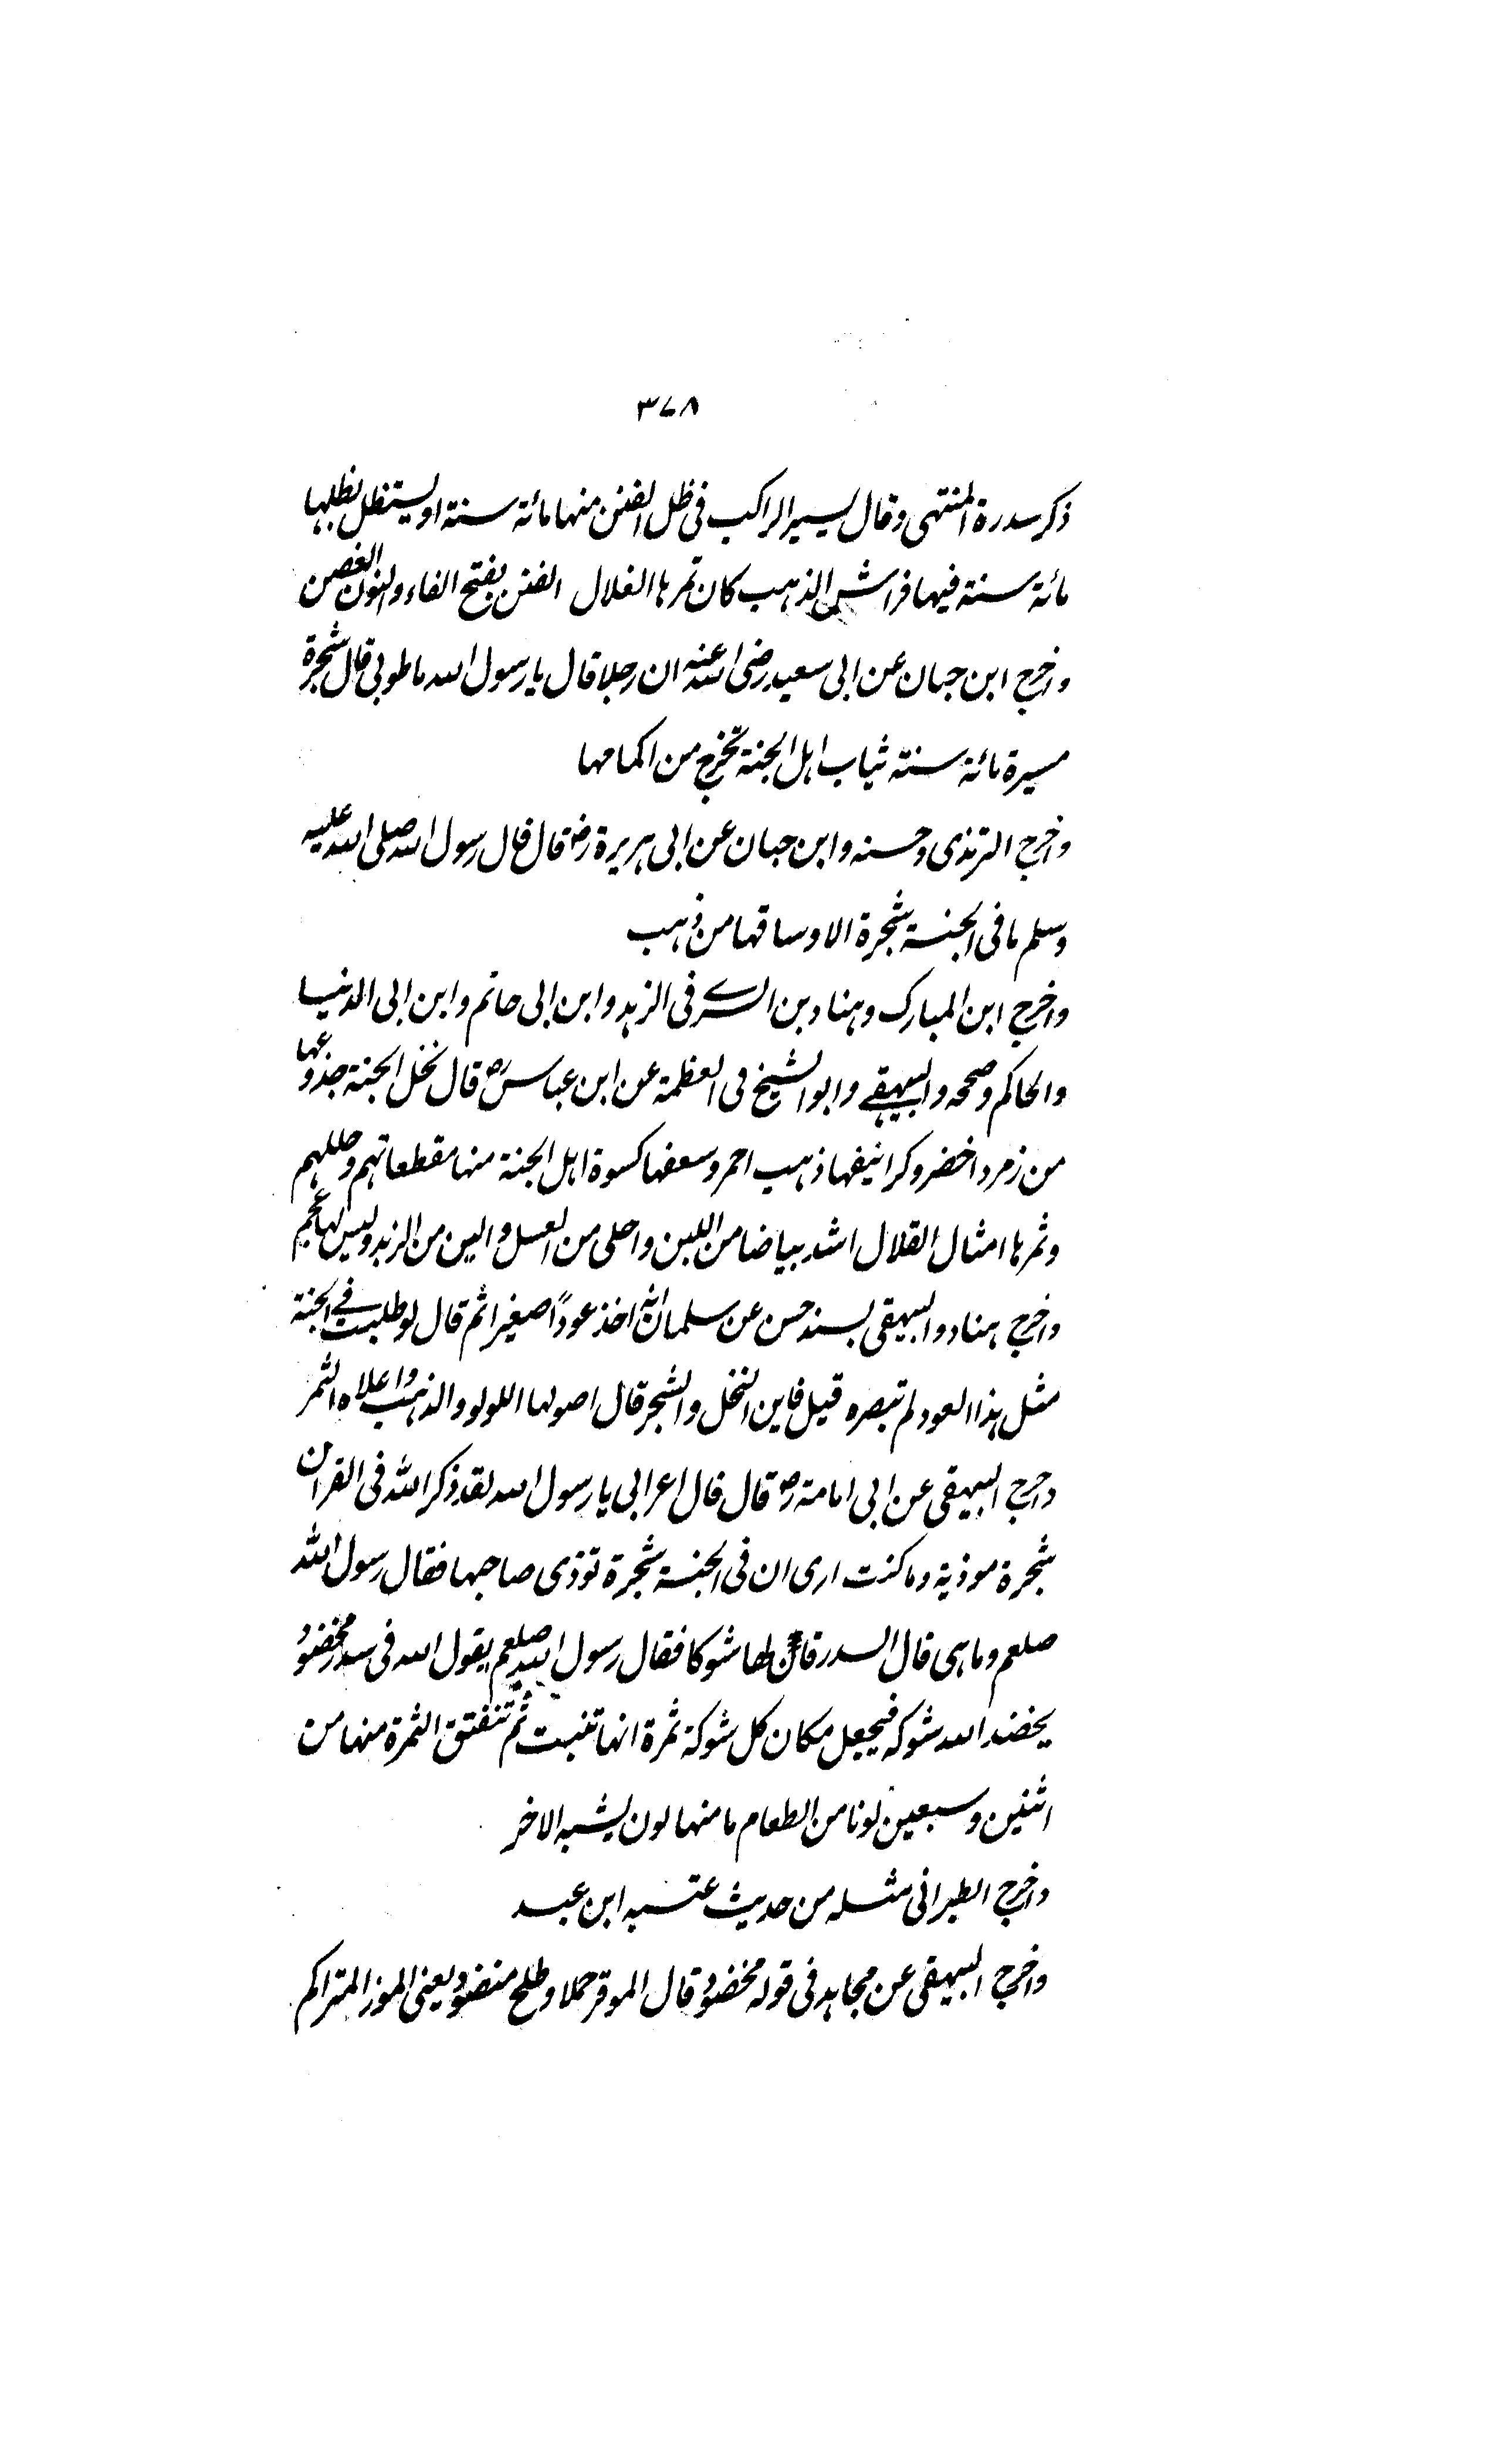 ٣٧٨
ذكر سدرة المنتهى وقال يسير الراكب فى ظل الفنن منها مائة سنة او يستظل بظلها
مائة سنة فيها فراش الذهب كان ثمرها القلال الفنن بفتح الفاء والنون الغصن
واخرج ابن حبان عن ابى سعيد رضى الله عنه ان رجلا قال يا رسول الله ما طوبى قال شجرة
مسيرة مائة سنة ثياب اهل الجنة تخرج من اكمامها
واخرج الترمذى وحسنه وابن حبان عن ابى هريرة رض قال قال رسول الله صلى الله عليه
وسلم ما فى الجنة شجرة الا وساقها من ذهب
واخرج ابن المبارك وهناد بن السرى فى الزهد وابن ابى حاتم وابن ابى الدنيا
والحاكم وصححه والبيهقى وابو الشيخ فى العظمة عن ابن عباس رض قال نخل الجنة جذوعها
من زمرد اخضر وكرانيفها ذهب احمر وسعفها كسوة اهل الجنة منها مقطعاتهم وحللهم
وثمرها امثال القلال اشد بياضا من اللبن واحلى من العسل والين من الزبد وليس لها عجم
واخرج هناد والبيهقى بسند حسن عن سلمان انه اخذ عودًا صغيرا ثم قال لو طلبت فى الجنة
مثل هذا العود لم تبصره قيل فاين النخل والشجر قال اصولها اللولو والذهب واعلاه الثمر
واخرج البيهقى عن ابى امامة رض قال قال اعرابى يا رسول الله لقد ذكر الله فى القران
شجرة موذية وما كنت ارى ان فى الجنة شجرة توذى صاحبها فقال رسول الله
صلعم وما هى قال السدر فان لها شوكا فقال رسول الله صلعم يقول الله فى سدر مخضود
يخضد الله شوكه فيجعل مكان كل شوكة ثمرة انها تنبت ثم تنفتق الثمرة منها من
اثنين وسبعين لونا من الطعام ما منها لون يشبه الاخر
واخرج الطبرانى مثله من حديث عتبه ابن عبد
واخرج البيهقى عن مجاهد فى قوله مخضود قال الموقر حملا وطلح منضود يعنى الموز المتراكم